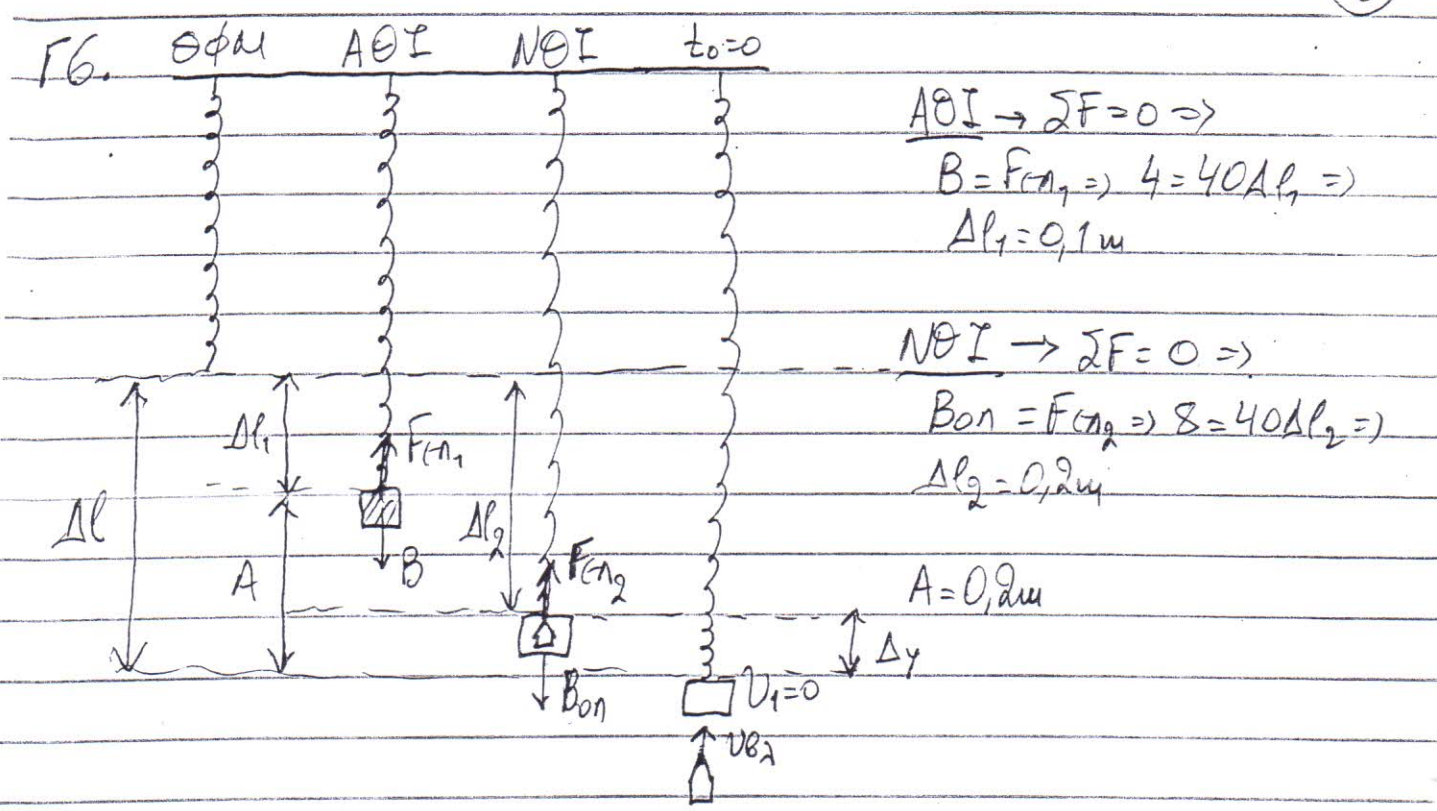 Γ6. ΘΦΜ ΑΘΙ ΝΘΙ t₀=0
ΑΘΙ → ΣF=0 =>
B = Fελ₁ => 4=40Δl₁ =>
Δl₁=0,1m
ΝΘΙ → ΣF=0 =>
Bολ = Fελ₂ => 8=40Δl₂ =>
Δl₂=0,2m
A=0,2m
Δl
Δl₁
Fελ₁
A
B
Δl₂
Fελ₂
Bολ
Δy
υ₁=0
υβλ